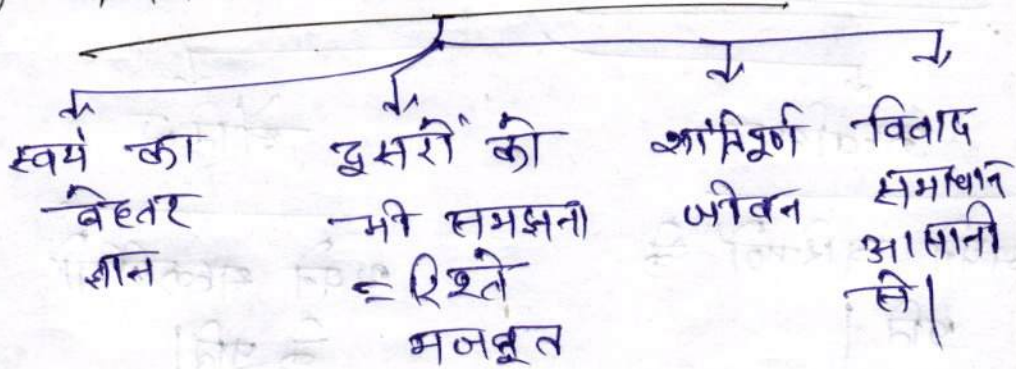 स्वयं का
बेहतर
ज्ञान
दूसरों को
भी समझना
= रिश्ते
मजबूत
शांतिपूर्ण
जीवन
विवाद
समाधान
आसानी
से।